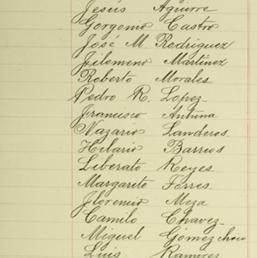 Jesús Aguirre
Gorgonio Castro
José M. Rodriguez
Filomeno Martinez
Roberto Morales
Pedro R. Lopez
Francisco Antuna
Nazario Landeros
Hilario Barrios
Liberato Reyes
Margarito Torres
Florencio Meza
Camilo Chavez
Miguel Gómez
Luis Ramirez